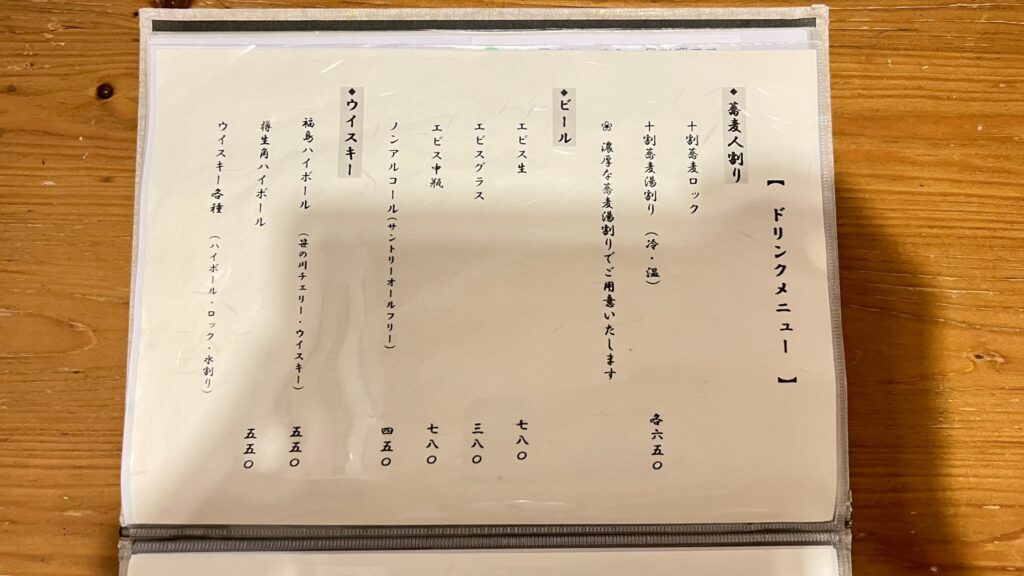 【 ドリンクメニュー 】
◆蕎麦人割り
十割蕎麦ロック
十割蕎麦湯割り (冷・温) 各六五〇
濃厚な蕎麦湯割りでご用意いたします
◆ビール
エビス生 七八〇
エビスグラス 三八〇
エビス中瓶 七八〇
ノンアルコール(サントリーオールフリー) 四五〇
◆ウイスキー
福島ハイボール (笹の川チェリー・ウイスキー) 五五〇
樽生角ハイボール 五五〇
ウイスキー各種 (ハイボール・ロック・水割り)